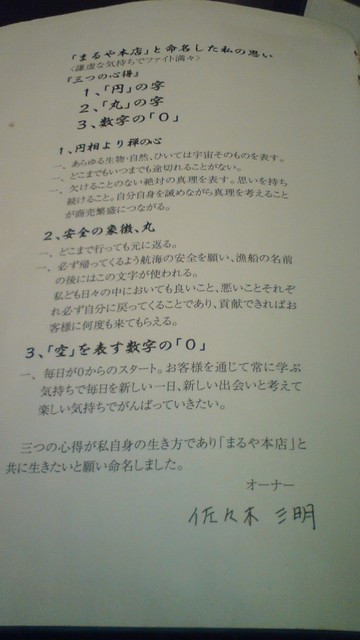 「まるや本店」と命名した私の思い
〈謙虚な気持ちでファイト満々〉
『三つの心得』
1、「円」の字
2、「丸」の字
3、数字の「0」
1、円相より禅の心
一、あらゆる生物・自然、ひいては宇宙そのものを表す。
一、どこまでもいつまでも途切れることがない。
一、欠けることのない絶対の真理を表す。思いを持ち
続けること。自分自身を誡めながら真理を考えること
が商売繁盛につながる。
2、安全の象徴、丸
一、どこまで行っても元に返る。
一、必ず帰ってくるよう航海の安全を願い、漁船の名前
の後にはこの文字が使われる。
私ども日々の中においても良いこと、悪いことそれぞ
れ必ず自分に戻ってくることであり、貢献できればお
客様に何度も来てもらえる。
3、「空」を表す数字の「0」
一、毎日が0からのスタート。お客様を通じて常に学ぶ
気持ちで毎日を新しい一日、新しい出会いと考えて
楽しい気持ちでがんばっていきたい。
三つの心得が私自身の生き方であり「まるや本店」と
共に生きたいと願い命名しました。
オーナー
佐々木 三明